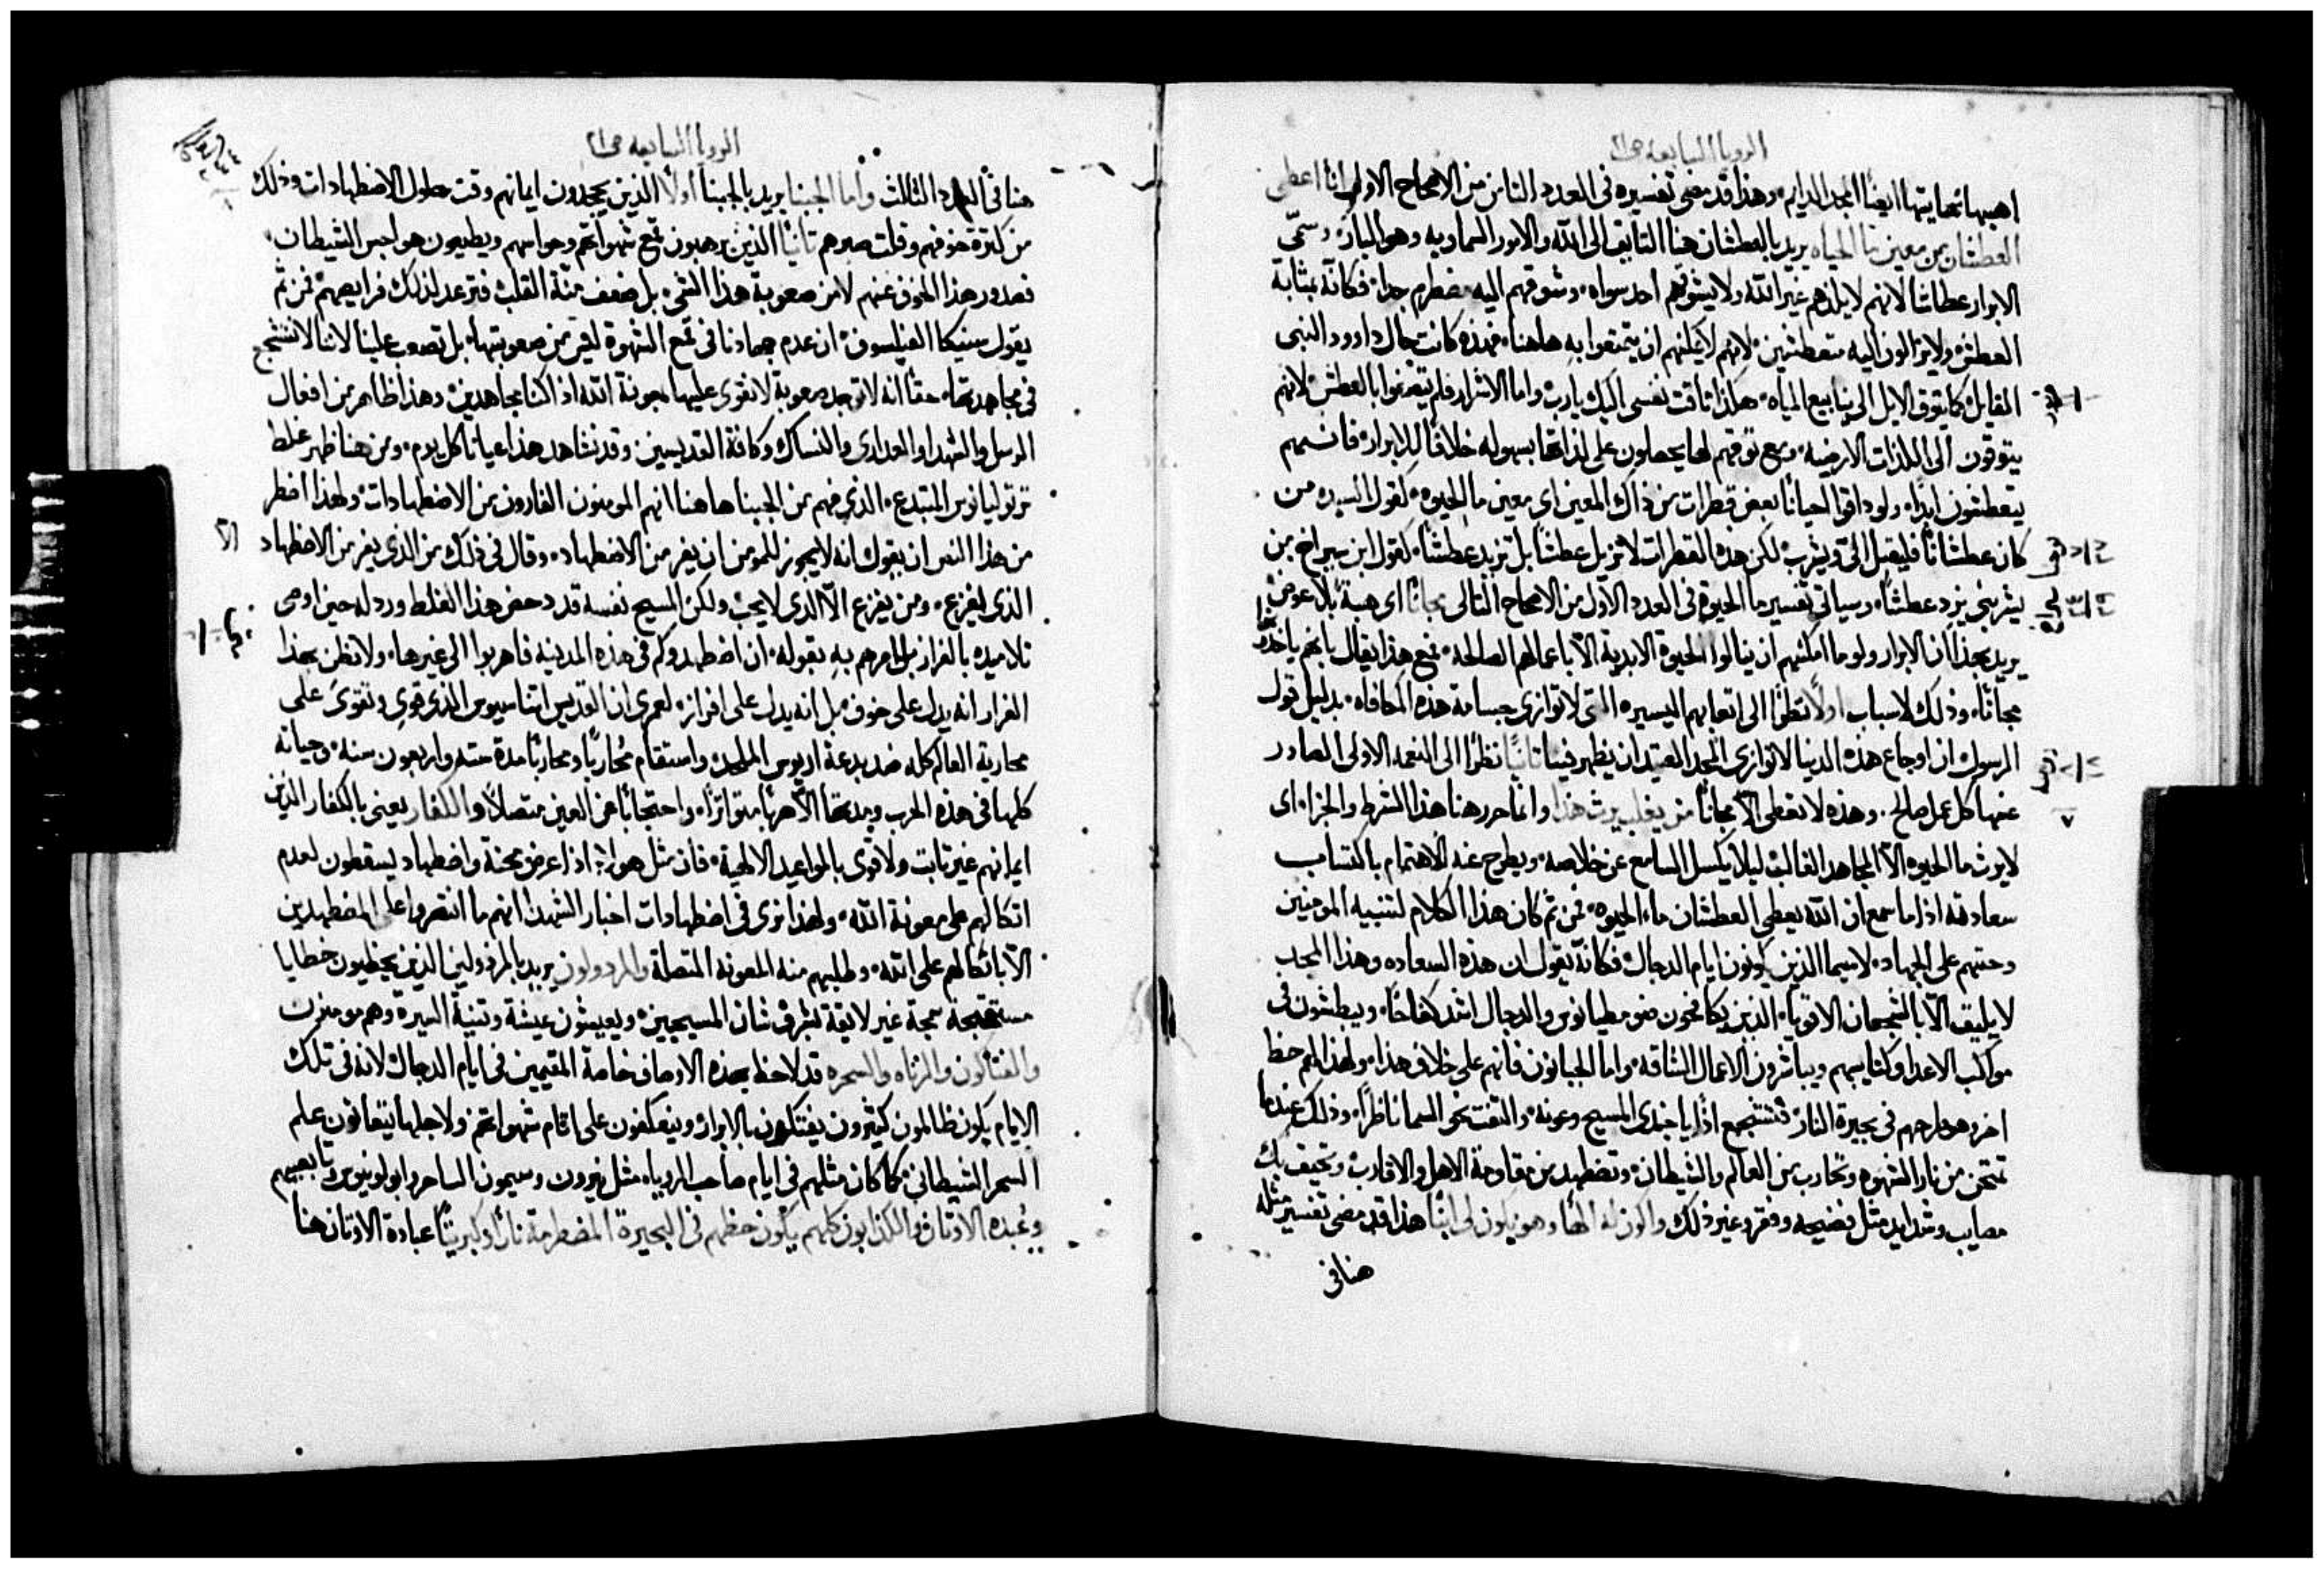 الرويا السابعه ص٢١
اهبها نهايتها ايضًا المجد الدايم، وهذا قد مضى تفسيره فى العدد الثامن من الاصحاح الاول انا اعطى
العطشان من معين ما الحياه يريد بالعطشان هنا التايق الى الله والامور السماويه وهو البار، وسمّى
الابرار عطاشًا لانهم لا يلذهم غير الله ولا يشوقهم احد سواه، وشوقهم اليه مضطرم جدا، فكانه بمثابة
العطش، ولا يزالون اليه متعطشين، لانهم لا يمكنهم ان يتمتعوا به هاهنا، فهذه كانت حال داوود النبى
القايل، كما يتوق الايل الى ينابيع المياه، هكذا تاقت نفسى اليك يارب، واما الاشرار فلم يتصفوا بالعطش، لانهم
يتوقون الى اللذات الارضيه، ومع توقهم لها يحصلون على لذاتها بسهوله خلافًا للابرار، فانهم
يتعطشون ابدًا، ولو داقوا احيانًا بعض قطرات من ذاك المعين اى معين ما الحيوه، لقول السيد من
كان عطشانًا فليقبل الىّ ويشرب، لكن هذه القطرات لا تزيل عطشًا بل تزيد عطشًا، لقول ابن سيراخ من
يشربنى يزد عطشًا، وسياتى تفسير ما الحيوة فى العدد الاول من الاصحاح التالى مجانًا اى هبة بلا عوض
يريد بهذا ان الابرار ولو ما امكنهم ان ينالوا الحيوة الابدية الا باعمالهم الصالحه، فمع هذا يقال بانهم ياخذونها
مجانًا، وذلك لاسباب اولًا نظرًا الى اتعابهم اليسيره التى لا توازى جسامة هذه المكافاه، بدليل قول
الرسول ان اوجاع هذه الدنيا لا توازى المجد العتيد ان يظهر فينا ثانيًا نظرًا الى النعمه الاولى الصادر
عنها كل عمل صالح، وهذه لا تعطى الا مجانًا من يغلب يرث هذا وانما حرر هنا هذا الشرط والجزا، اى
لا يرث ما الحيوه الا المجاهد الغالب ليلا يكسل السامع عن خلاصه، ويطرح عنه الاهتمام باكتساب
سعادته اذا ما سمع ان الله يعطى العطشان ماء الحيوه، فمن ثم كان هذا الكلام لتنبيه المومنين
وحثهم على الجهاد، لا سيما الذين يكونون ايام الدجال، فكانه يقول ان هذه السعاده وهذا المجد
لا يليق الا بالشجعان الاقويا، الذين يكافحون ضو مطيانوس والدجال اشد كفاحًا، ويبطشون فى
مواكب الاعدا وكتايبهم ويباشرون الاعمال الشاقه، واما الجبانون فانهم على خلاف هذا، ولهذا لهم حظ
اخر وهو طرحهم فى بحيرة النار، فتشجع اذًا يا جندى المسيح وعونه، والتفت نحو السما ناظرًا، وذلك عندما
تمتحن من نار الشهوه وتحارب من العالم والشيطان، وتضطهد من مقاومة الاهل والاقارب، وتحيق بك
مصايب وشدايد مثل فضيحه وفقر وغير ذلك واكون له الهًا وهو يكون لى ابنًا هذا قد مضى تفسير مثله
هنا فى
٧
الرويا السابعه ص٢١
هنا فى العدد الثالث واما الجبنا يريد بالجبنا اولًا الذين يجحدون ايمانهم وقت حلول الاضطهادات، وذلك
من كثرة خوفهم وقلت صبرهم ثانيًا الذين يرهبون قمع شهواتهم وحواسهم ويطيعون هواجس الشيطان،
فصدور هذا الخوف عنهم لا من صعوبة هذا الشى، بل ضعف منّة القلب، فترعد لذلك فرايصهم، فمن ثم
يقول سنيكا الفيلسوف، ان عدم جهادنا فى قمع الشهوة ليس من صعوبتها، بل تصعب علينا لاننا لا نتشجع
فى مجاهدتها، حقًا انه لا توجد صعوبة لا نقوى عليها بمعونة الله اذا كنا مجاهدين، وهذا ظاهر من افعال
الرسل والشهدا والعدارى والنساك وكافة القديسين، وقد نشاهد هذا عيانًا كل يوم، ومن هنا ظهر غلط
ترتوليانوس المبتدع، الذى فهم من الجبنا هاهنا انهم المومنون الفارون من الاضطهادات، ولهذا اضطر
من هذا النص ان يقول انه لا يجوز للمومن ان يفر من الاضطهاد، وقال فى ذلك من الذى يفر من الاضطهاد الا
الذى يفزع، ومن يفزع الا الذى لا يحب، ولكن المسيح نفسه قد دحض هذا الغلط ورذله حين اوصى
تلاميذه بالفرار بل امرهم به بقوله، ان اضطهدوكم فى هذه المدينه فاهربوا الى غيرها، ولا تظن بهذا
الفرار انه يدل على خوف، بل انه يدل على افراز، لعمرى ان القديس اتناسيوس الذى قوى وتقوى على
محاربة العالم كله ضد بدعة اريوس الملحد، واستقام محاربًا ومحاربًا مدة سته واربعون سنه، وحياته
كلها فى هذه الحرب ومدتها الا هربًا متواترًا، واحتجابًا عن العين متصلًا والكفار يعنى بالكفار الذين
ايمانهم غير ثابت ولا قوى بالمواعيد الالهية، فان مثل هولا اذا عرض محنة واضطهاد يسقطون لعدم
اتكالهم على معونة الله، ولهذا نرى فى اضطهادات اخبار الشهدا انهم ما انتصروا على المضطهدين
الا باتكالهم على الله، وطلبهم منه المعونه المتصلة والمرذولون يريد بالمرذولين الذين يخطيون خطايا
مستقبحة سمجة غير لايقة بشرف شان المسيحيين، ويعيشون عيشة وتنية السيرة وهم مومنون
والقتالون والزناه والسحره قد لاحظ بهذه الاوصاف خاصة المقيمين فى ايام الدجال، لانه فى تلك
الايام يكون ظالمون كثيرون يفتكون بالابرار، وينعكفون على اتمام شهواتهم ولاجلها يتعانون علم
السحر الشيطانى، كما كان مثلهم فى ايام صاحب الرويا، مثل نيرون وسيمون الساحر وابولونيوس تابعيهم
وعبده الاوثان والكذابون كلهم يكون حظهم فى البحيرة المضطرمة نارًا وكبريتًا عبادة الاوثان هنا
٨